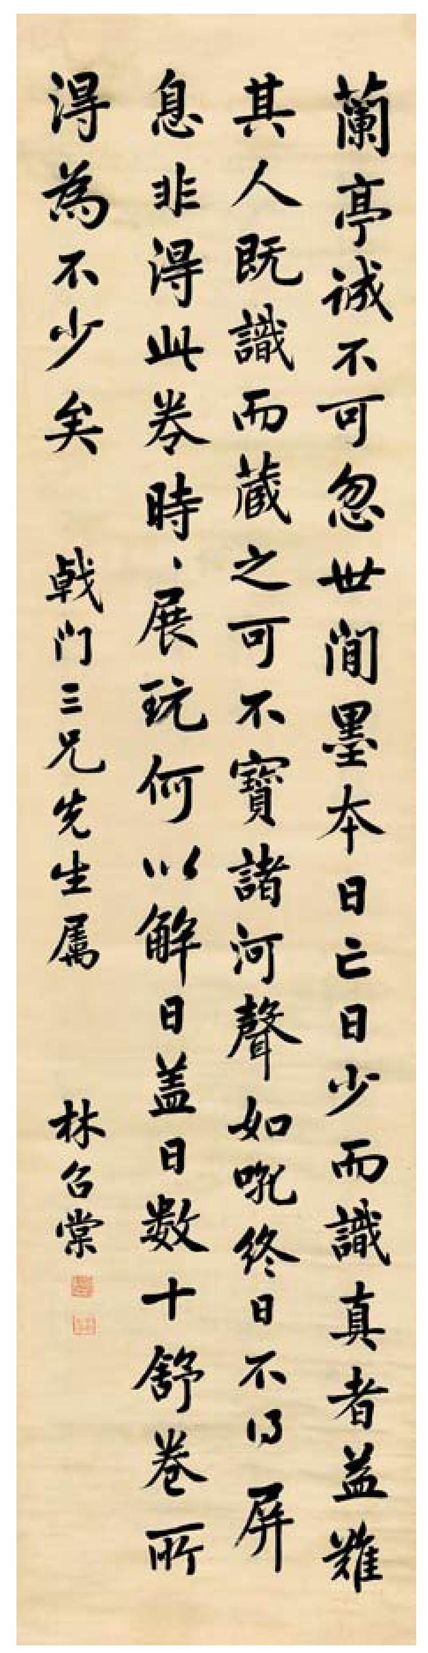 蘭亭誠不可忽世間墨本日亡日少而識真者益難
其人既識而蔵之可不寶諸河聲如吼終日不得屏
息非得此卷時、展玩何以解日盖日數十舒卷所
得為不少矣 戟门三兄先生属 林召棠